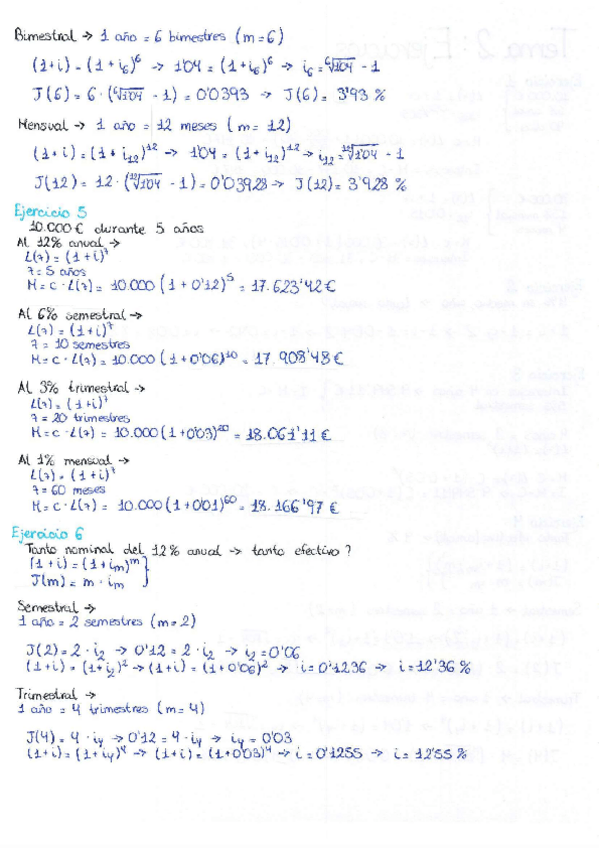 Bimestral → 1 año = 6 bimestres (m=6)
(1+i) = (1+i₆)⁶ → 1'04 = (1+i₆)⁶ → i₆ = ⁶√1'04 - 1
J(6) = 6 · (⁶√1'04 - 1) = 0'0393 → J(6) = 3'93 %
Mensual → 1 año = 12 meses (m=12)
(1+i) = (1+i₁₂)¹² → 1'04 = (1+i₁₂)¹² → i₁₂ = ¹²√1'04 - 1
J(12) = 12 · (¹²√1'04 - 1) = 0'03928 → J(12) = 3'928 %
Ejercicio 5
10.000 € durante 5 años
Al 12% anual →
L(7) = (1+i)⁷
7 = 5 años
M = C · L(7) = 10.000 (1 + 0'12)⁵ = 17.623'42 €
Al 6% semestral →
L(7) = (1+i)⁷
7 = 10 semestres
M = C · L(7) = 10.000 (1+0'06)¹⁰ = 17.908'48 €
Al 3% trimestral →
L(7) = (1+i)⁷
7 = 20 trimestres
M = C · L(7) = 10.000 (1+0'03)²⁰ = 18.061'11 €
Al 1% mensual →
L(7) = (1+i)⁷
7 = 60 meses
M = C · L(7) = 10.000 (1+0'01)⁶⁰ = 18.166'97 €
Ejercicio 6
Tanto nominal del 12% anual → tanto efectivo?
(1+i) = (1+iₘ)ᵐ
J(m) = m · iₘ }
Semestral →
1 año = 2 semestres (m=2)
J(2) = 2 · i₂ → 0'12 = 2 · i₂ → i₂ = 0'06
(1+i) = (1+i₂)² → (1+i) = (1+0'06)² → i = 0'1236 → i = 12'36 %
Trimestral →
1 año = 4 trimestres (m=4)
J(4) = 4 · i₄ → 0'12 = 4 · i₄ → i₄ = 0'03
(1+i) = (1+i₄)⁴ → (1+i) = (1+0'03)⁴ → i = 0'1255 → i = 12'55 %